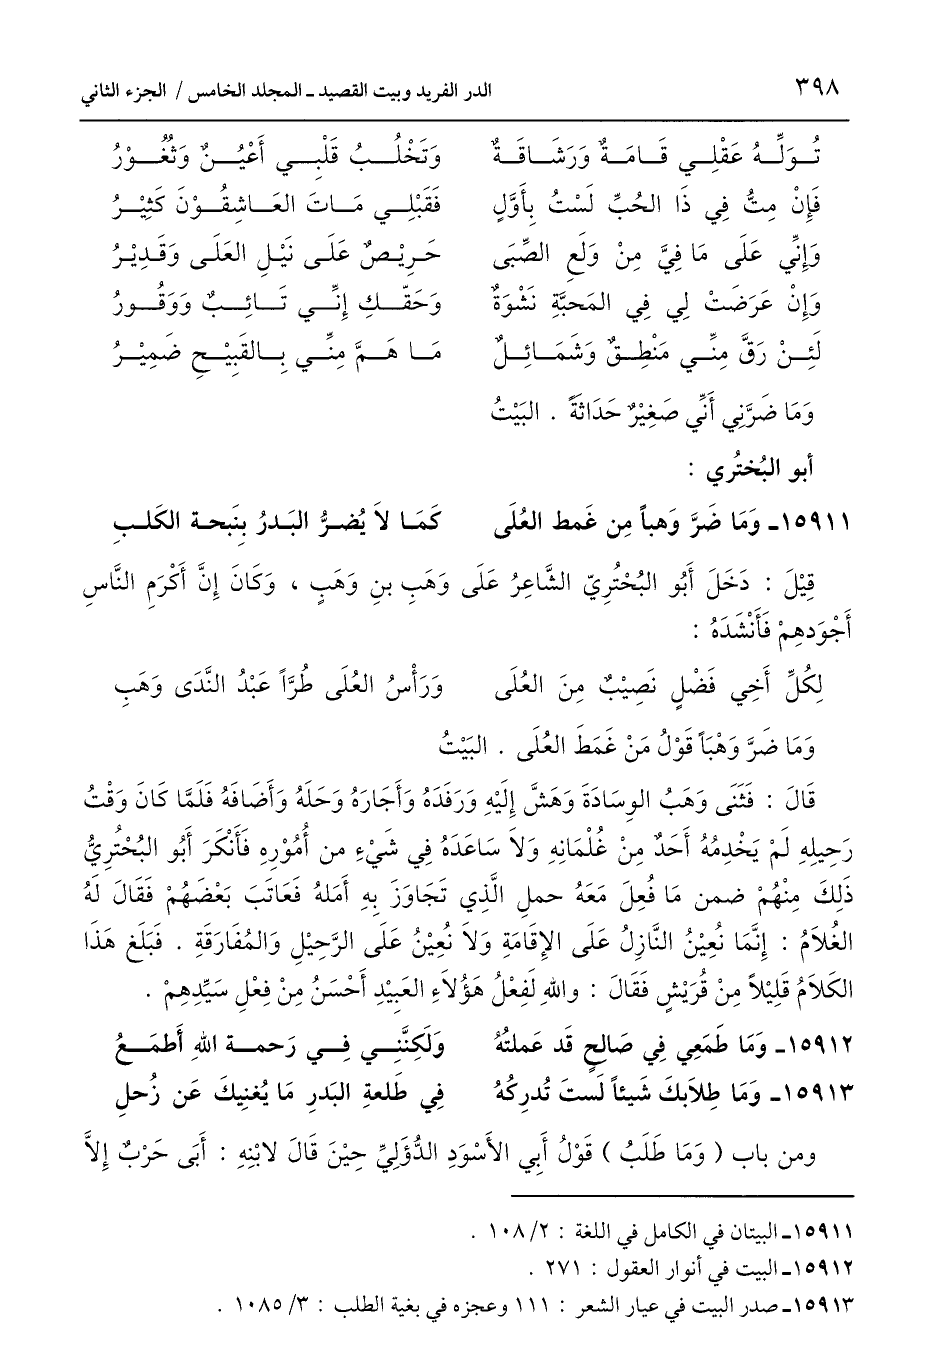 ٣٩٨ الدر الفريد وبيت القصيد - المجلد الخامس / الجزء الثاني
تُـوَلِّـهُ عَقْلِـي قَـامَـةٌ وَرَشَـاقَـةٌ وَتَخْلُـبُ قَلْبِـي أَعْيُـنٌ وَثُغُـورُ
فَإِنْ مِتُّ فِي ذَا الحُبِّ لَسْتُ بِأَوَّلٍ فَقَبْلِـي مَـاتَ العَـاشِقُـوْنَ كَثِيْـرُ
وَإِنِّي عَلَى مَا فِيَّ مِنْ وَلَعِ الصِّبَى حَـرِيْـصٌ عَلَـى نَيْـلِ العَلَـى وَقَـدِيْـرُ
وَإِنْ عَرَضَتْ لِي فِي المَحبَّةِ نَشْوَةٌ وَحَقّـكِ إِنِّـي تَـائِـبٌ وَوَقُـورُ
لَئِـنْ رَقَّ مِنِّـي مَنْطِـقٌ وَشَمَـائِـلٌ مَـا هَـمَّ مِنِّـي بِـالقَبِيْـحِ ضَمِيْـرُ
وَمَا ضَرَّنِي أَنِّي صَغِيْرٌ حَدَاثَةً . البَيْتُ
أبو البُختُري :
١٥٩١١- وَمَا ضَرَّ وَهباً مِن غَمط العُلَى كَمَـا لاَ يُضـرُّ البَـدرُ بِنَبحـة الكَلـبِ
قِيْلَ : دَخَلَ أَبُو البُحْتُرِيّ الشَّاعِرُ عَلَى وَهَبِ بنِ وَهَبٍ ، وَكَانَ إِنَّ أَكْرَمِ النَّاسِ
أَجْوَدهِمْ فَأَنْشَدَهُ :
لِكُلِّ أَخِي فَضْلٍ نَصِيْبٌ مِنَ العُلَى وَرَأْسُ العُلَى طُرَّاً عَبْدُ النَّدَى وَهَبِ
وَمَا ضَرَّ وَهْبَاً قَوْلُ مَنْ غَمَطَ العُلَى . البَيْتُ
قَالَ : فَثَنَى وَهَبُ الوِسَادَةَ وَهَشَّ إِلَيْهِ وَرَفَدَهُ وَأَجَارَهُ وَحَلَهُ وَأَضَافَهُ فَلَمَّا كَانَ وَقْتُ
رَحِيلِهِ لَمْ يَخْدِمُهُ أَحَدٌ مِنْ غُلْمَانِهِ وَلاَ سَاعَدَهُ فِي شَيْءٍ من أُمُوْرِهِ فَأَنْكَرَ أَبُو البُحْتُرِيُّ
ذَلِكَ مِنْهُمْ ضمن مَا فُعِلَ مَعَهُ حملِ الَّذِي تَجَاوَزَ بِهِ أَملهُ فَعَاتَبَ بَعْضَهُمْ فَقَالَ لَهُ
الغُلاَمُ : إِنَّمَا نُعِيْنُ النَّازِلُ عَلَى الإِقَامَةِ وَلاَ نُعِيْنُ عَلَى الرَّحِيْلِ وَالمُفَارَقَةِ . فَبَلَغ هَذَا
الكَلاَمُ قَلِيْلاً مِنْ قُرَيْشٍ فَقَالَ : واللهِ لَفِعْلُ هَؤُلاَءِ العَبِيْدِ أَحْسَنُ مِنْ فِعْلِ سَيِّدِهِمْ .
١٥٩١٢- وَمَا طَمَعِي فِي صَالِحٍ قَد عَملتُهُ وَلَكِنَّنِـي فِـي رَحمـة اللهِ أَطمَـعُ
١٥٩١٣- وَمَا طِلاَبكَ شَيئاً لَستَ تُدرِكُهُ فِي طَلعةِ البَدرِ مَا يُغنِيكَ عَن زُحلِ
ومن باب ( وَمَا طَلَبُ ) قَوْلُ أَبِي الأَسْوَدِ الدُّؤَلِيِّ حِيْنَ قَالَ لابْنِهِ : أَبَى حَرْبٌ إِلاَّ
١٥٩١١- البيتان في الكامل في اللغة : ٢/ ١٠٨ .
١٥٩١٢- البيت في أنوار العقول : ٢٧١ .
١٥٩١٣- صدر البيت في عيار الشعر : ١١١ وعجزه في بغية الطلب : ٣/ ١٠٨٥ .